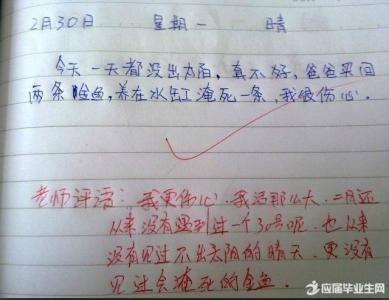 2月30日 星期一 晴
今天一天都没出太阳,真不好,爸爸买回
两条金鱼,养在水缸淹死一条,我很伤心.
老师评语:我更伤心.我活那么大.二月还
从来没有遇到过一个30号呢.也从来
没有见过不出太阳的晴天.更没有
见过会淹死的金鱼.
应届毕业生网